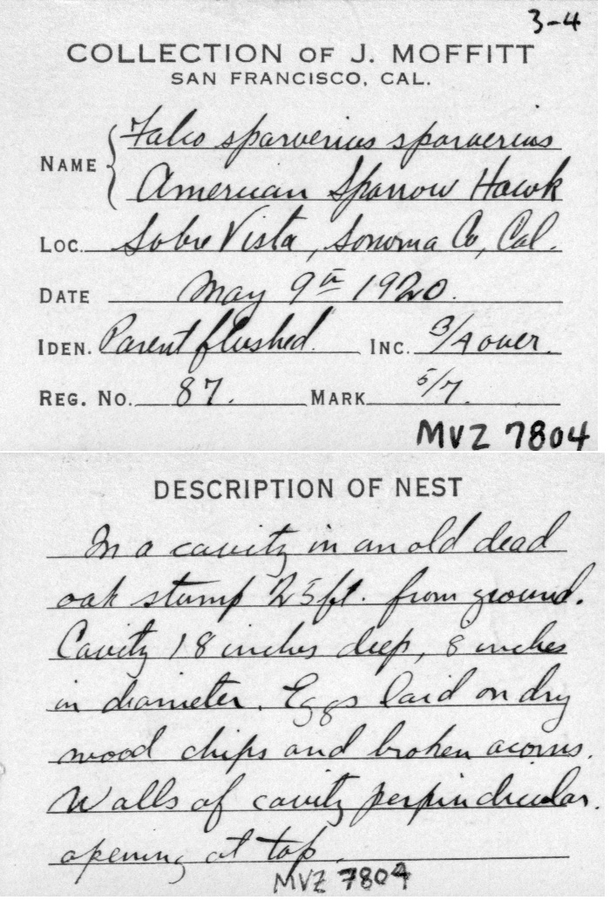 3-4
COLLECTION OF J. MOFFITT
SAN FRANCISCO, CAL.
NAME Falco sparverius sparverius
American Sparrow Hawk
LOC. Sobre Vista, Sonoma Co, Cal.
DATE May 9th 1920.
IDEN. Parent flushed. INC. 3/4 over.
REG. NO. 87. MARK 5/7.
MVZ 7804
DESCRIPTION OF NEST
In a cavity in an old dead
oak stump 25 ft. from ground.
Cavity 18 inches deep, 8 inches
in diameter. Eggs laid on dry
wood chips and broken acorns.
Walls of cavity perpindicular.
opening at top.
MVZ 7804